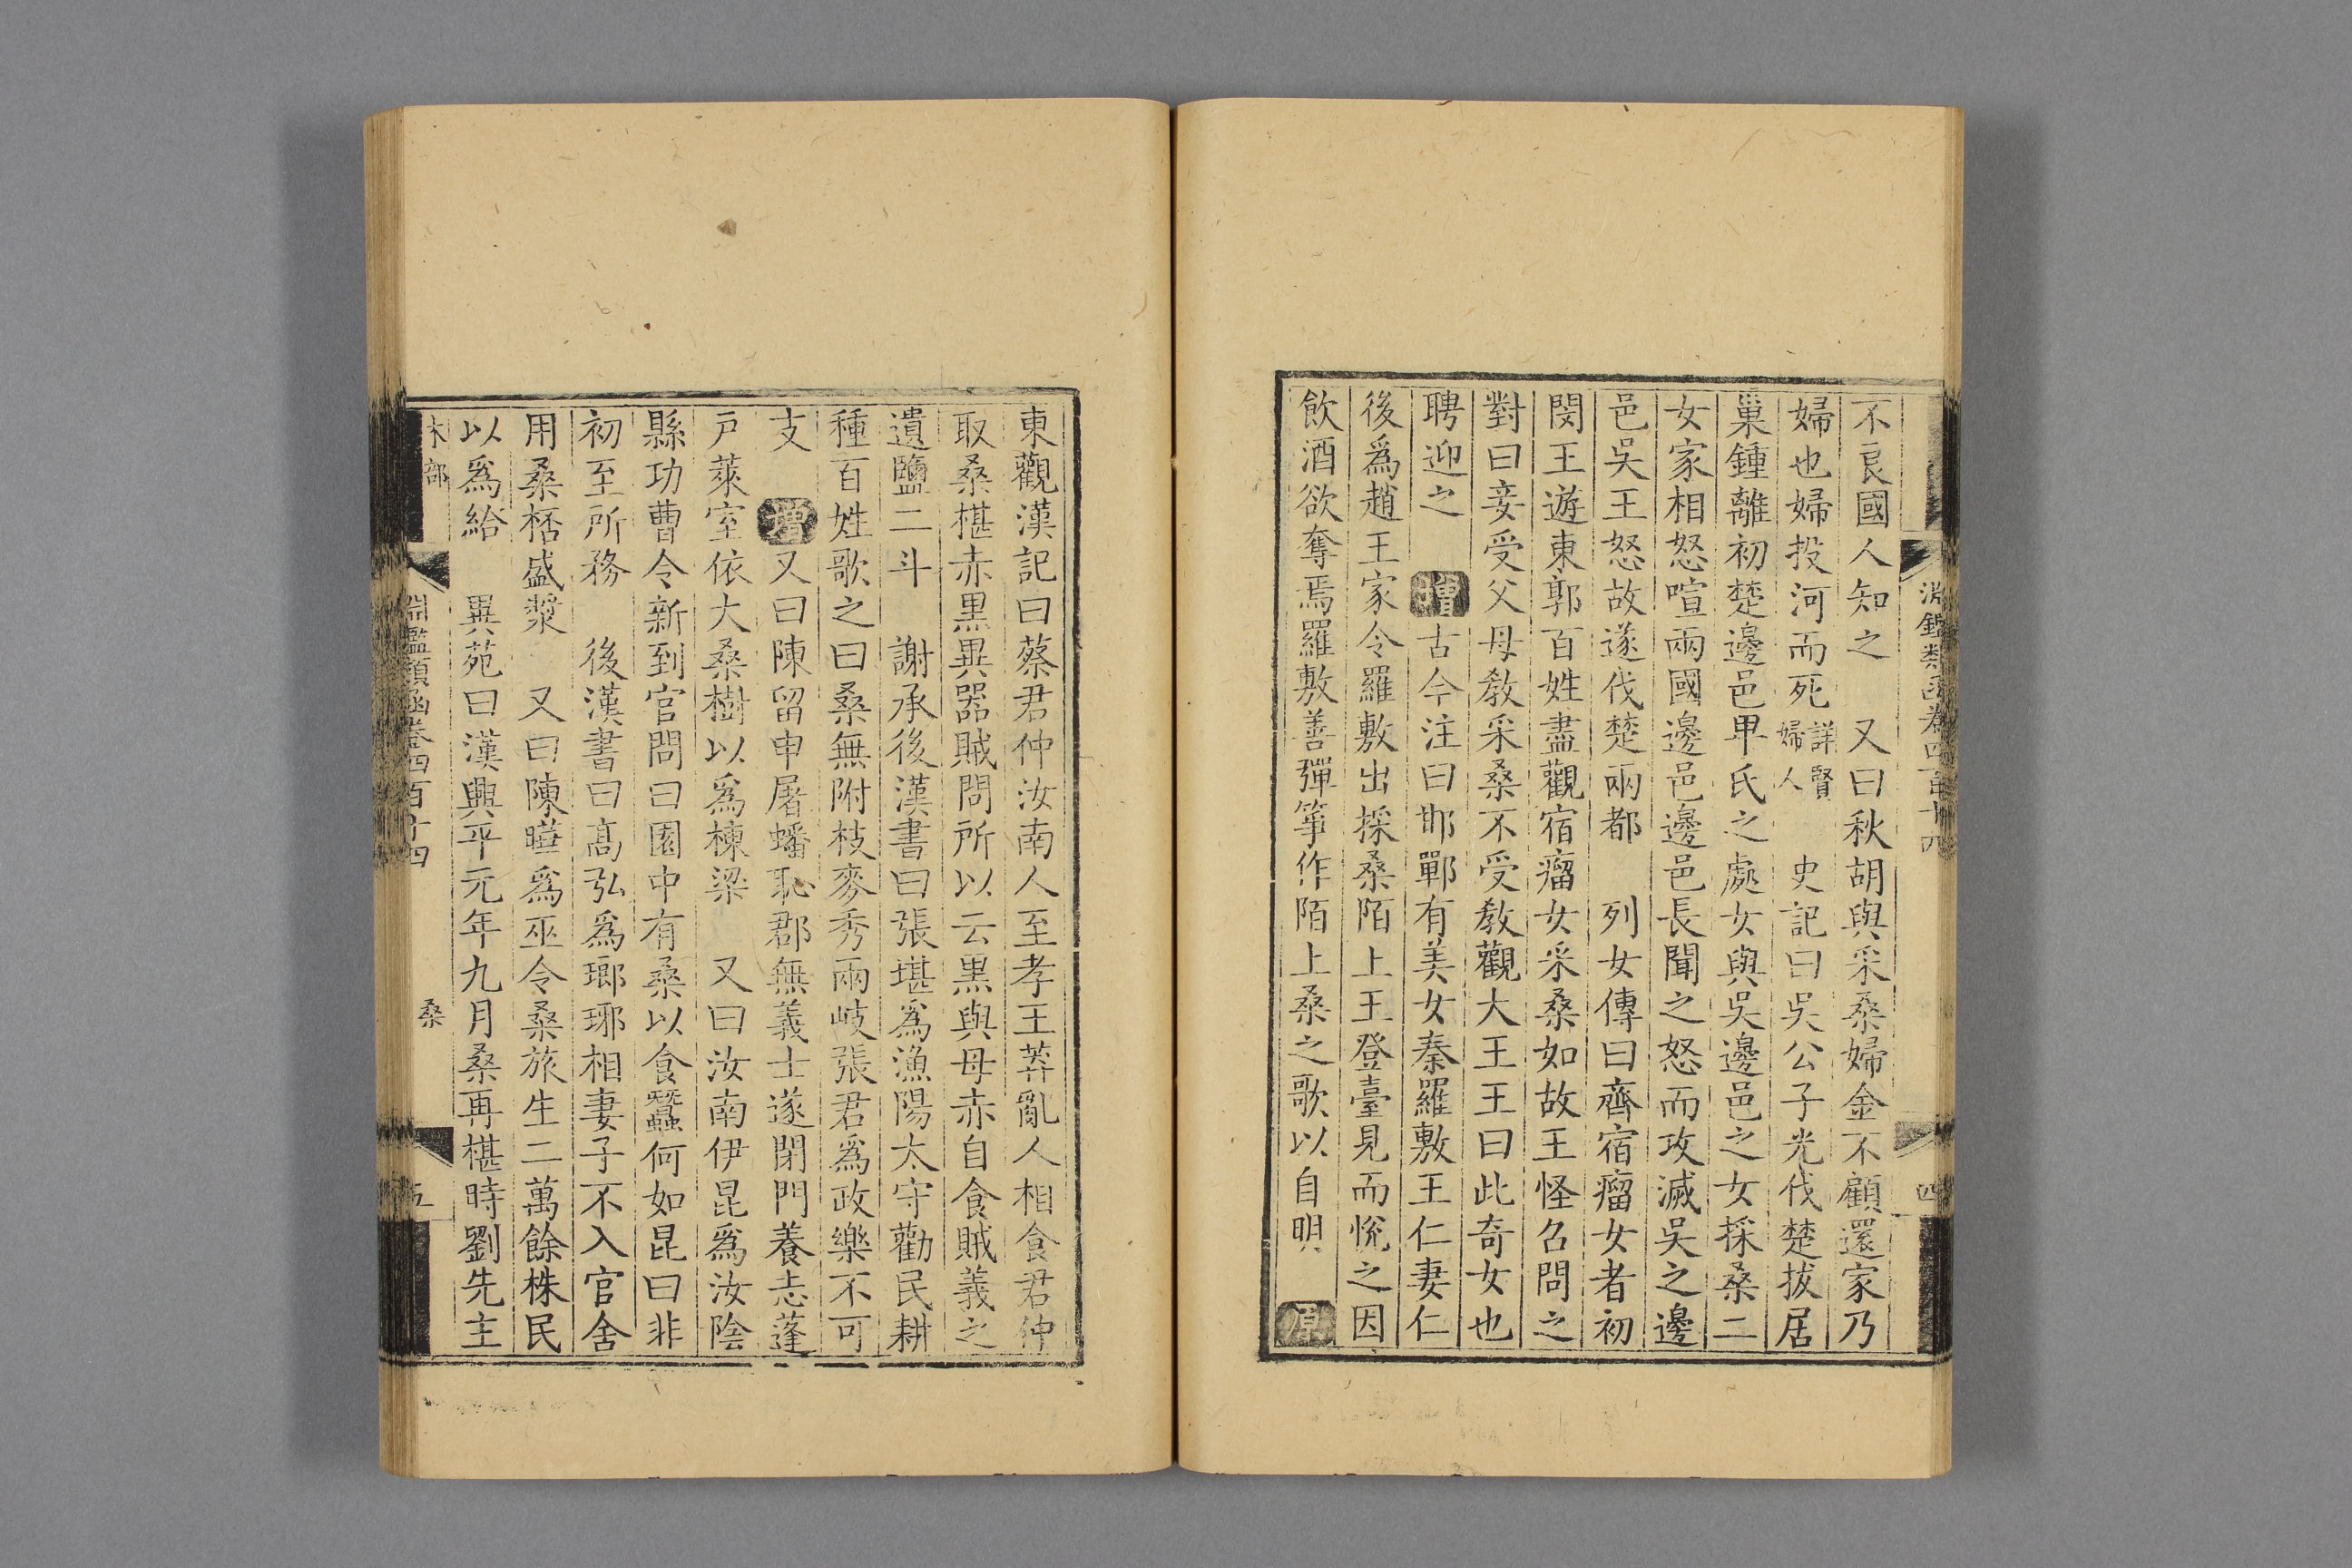 淵鑑類函卷四百十四
四
不良國人知之　又曰秋胡與采桑婦金不顧還家乃
婦也婦投河而死詳賢婦人　史記曰吳公子光伐楚拔居
巢鍾離初楚邊邑甲氏之處女與吳邊邑之女採桑二
女家相怒喧兩國邊邑邊邑長聞之怒而攻滅吳之邊
邑吳王怒故遂伐楚兩都　列女傳曰齊宿瘤女者初
閔王遊東郭百姓盡觀宿瘤女采桑如故王怪召問之
對曰妾受父母敎采桑不受敎觀大王王曰此奇女也
聘迎之　增古今注曰邯鄲有美女秦羅敷王仁妻仁
後爲趙王家令羅敷出採桑陌上王登臺見而悅之因
飲酒欲奪焉羅敷善彈箏作陌上桑之歌以自明　原
東觀漢記曰蔡君仲汝南人至孝王莽亂人相食君仲
取桑椹赤黑異器賊問所以云黑與母赤自食賊義之
遺鹽二斗　謝承後漢書曰張堪爲漁陽太守勸民耕
種百姓歌之曰桑無附枝麥秀兩岐張君爲政樂不可
支　增又曰陳留申屠蟠恥郡無義士遂閉門養志蓬
戸萊室依大桑樹以爲棟梁　又曰汝南伊昆爲汝陰
縣功曹令新到官問曰園中有桑以食蠶何如昆曰非
初至所務　後漢書曰高弘爲瑯琊相妻子不入官舍
用桑桮盛漿　又曰陳曄爲巫令桑旅生二萬餘株民
以爲給　異苑曰漢興平元年九月桑再椹時劉先主
木部
淵鑑類函卷四百十四
桑
五